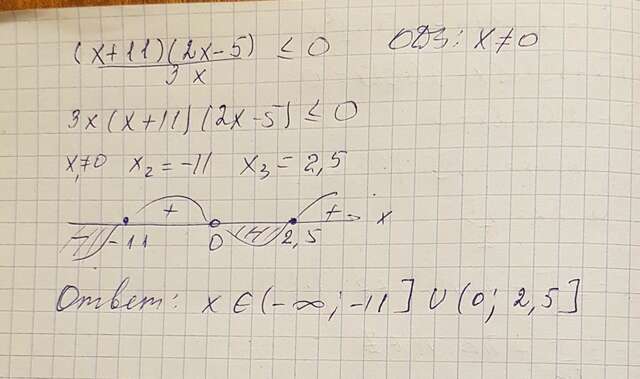 (x+11)(2x-5) ≤ 0 ОДЗ: x≠0
3x
3x(x+11)(2x-5) ≤ 0
x₁≠0 x₂=-11 x₃=2,5
- -11 + 0 - 2,5 + x
Ответ: x ∈ (-∞; -11] ∪ (0; 2,5]